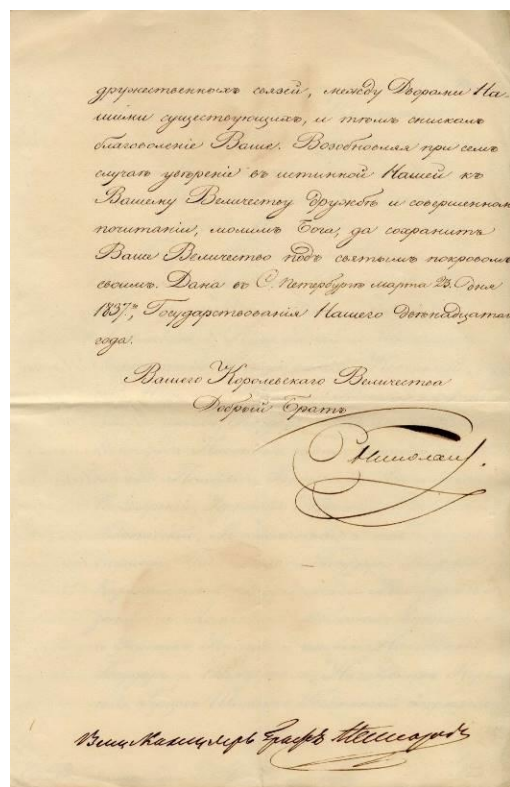 дружественныхъ связей, между Дворами На-
шими существующихъ, и тѣмъ снискалъ
благоволеніе Ваше. Возобновляя при семъ
случаѣ увѣреніе въ истинной Нашей къ
Вашему Величеству дружбѣ и совершенномъ
почитаніи, молимъ Бога, да сохранитъ
Ваше Величество подъ святымъ покровомъ
своимъ. Дана въ С. Петербургѣ марта 23. дня
1837., Государствованія Нашего двѣнадцатаго
года.
Вашего Королевскаго Величества
Добрый Братъ
Николай.
Вице Канцлеръ Графъ Нессельроде